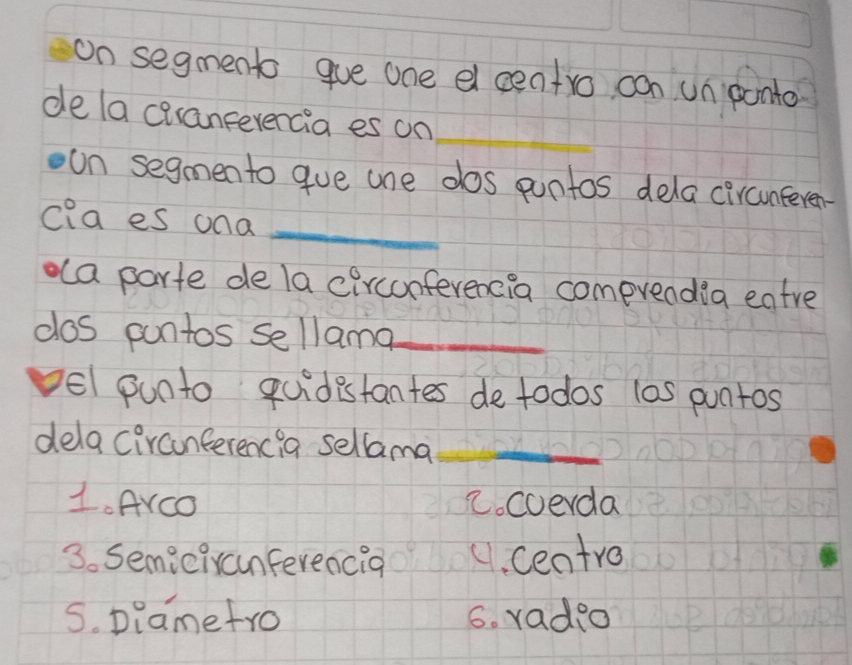 Un segmento que une el centro con un punto
de la circunferencia es un
Un segmento que une dos puntos dela circunferen-
cia es una
La parte de la circunferencia comprendia entre
dos puntos se llama
El punto quidistantes de todos los puntos
dela circunferencia sellama
1. Arco 2. cuerda
3. Semicircunferencia 4. centro
5. Diámetro 6. radio